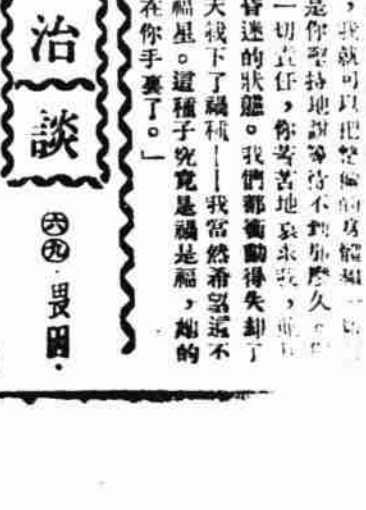 ，我就可以把整個的身體獻一切
是你堅持地說等待不到那麼久
一切責任，你若苦地哀求我，並且
昏迷的狀態。我們都衝動得失却了
天我下了禍種——我當然希望這不
福星。這種子究竟是禍是福，她的
在你手裏了。」
治談
㊅㊈．畏．